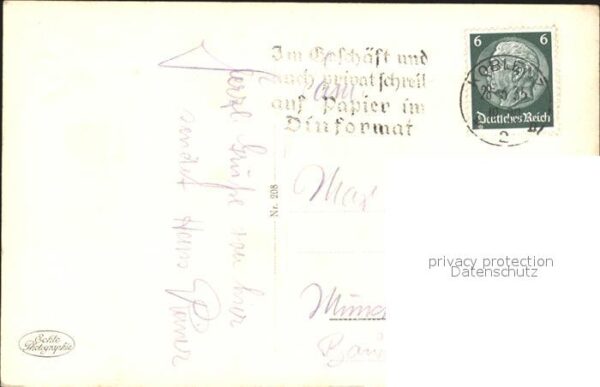 Im Geschäft und
auch privat schreib
auf Papier im
Dinformat
6 6
KOBLENZ
2
Deutsches Reich
an
Herzl. Grüße von hier
sendet Hans
Max
Münc
Nr. 208
privacy protection
Datenschutz
Echte
Photographie